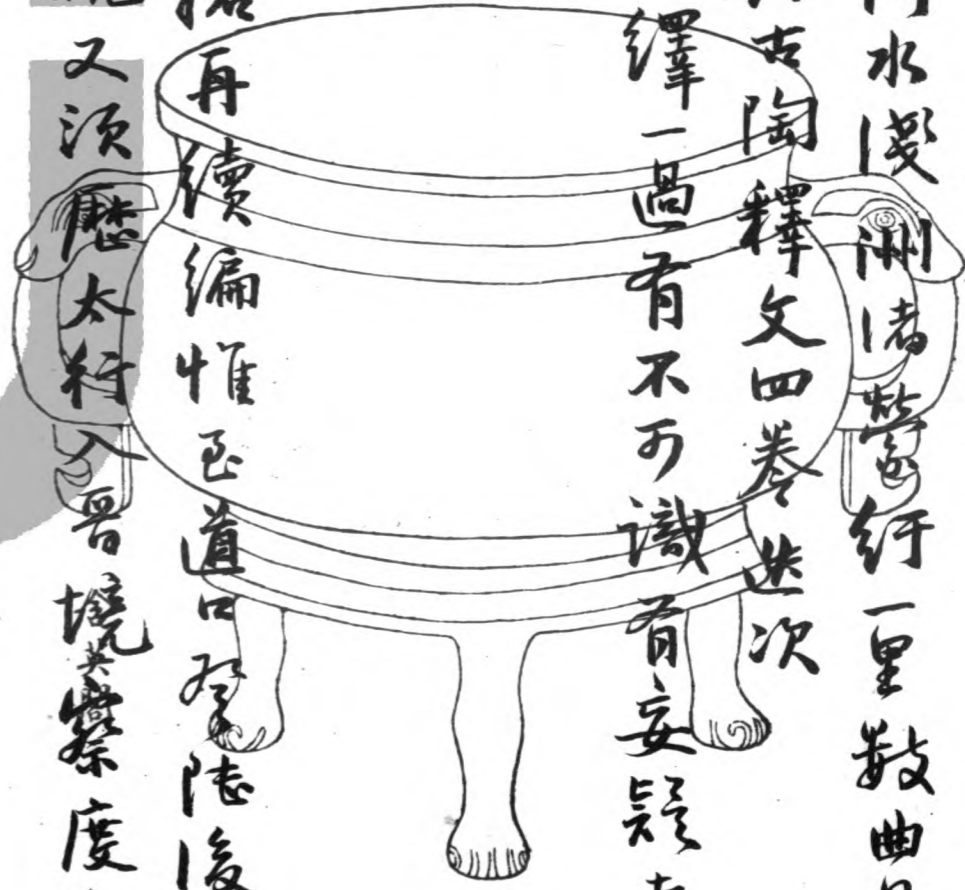 水淺洲渚縈紆一里數曲
古陶釋文四卷迭次
繹一過有不可識有妄疑
再續編惟至道口登陸後
又須歷太行入晉境英爨度